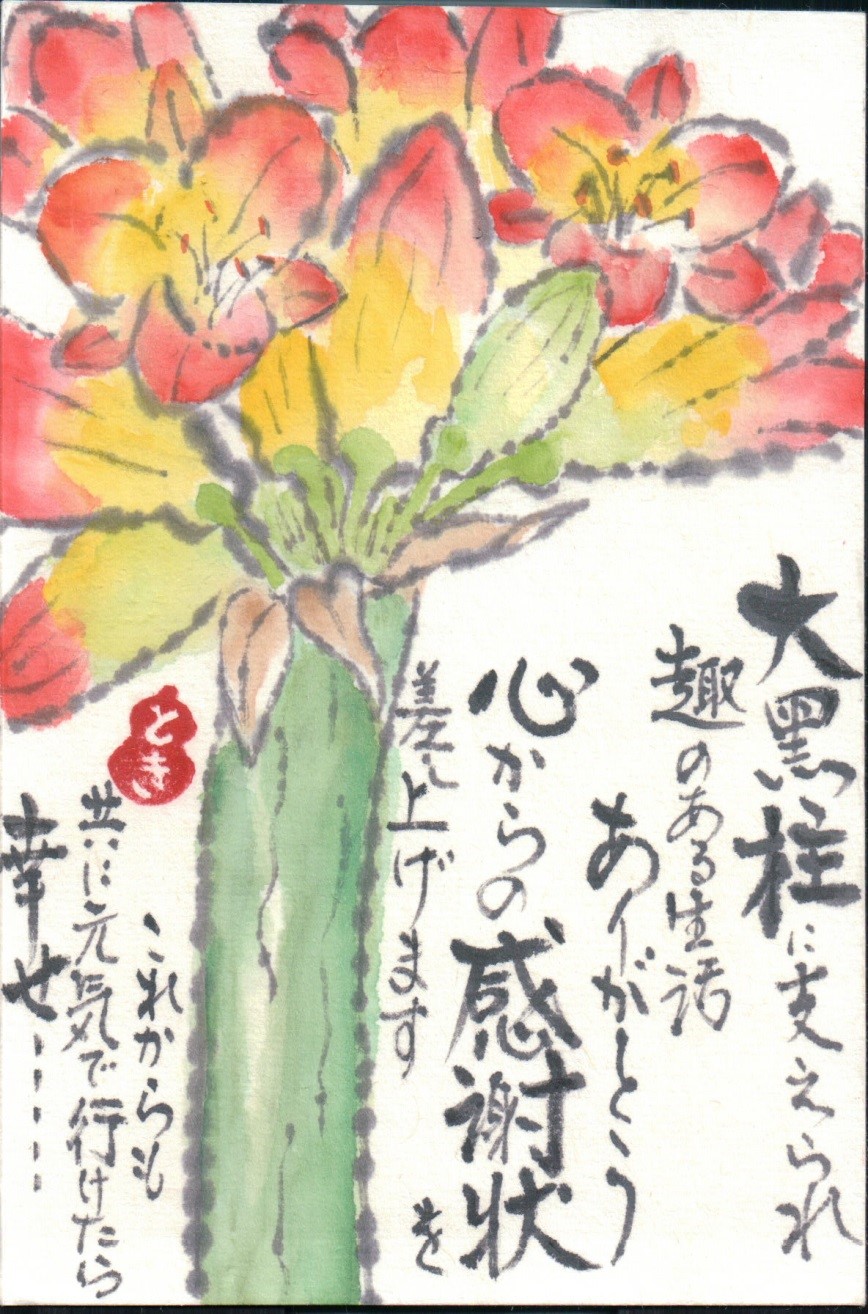 大黒柱に支えられ
趣のある生活
ありがとう
心からの感謝状を
差し上げます
これからも
共に元気で行けたら
幸せ・・・・・
とき